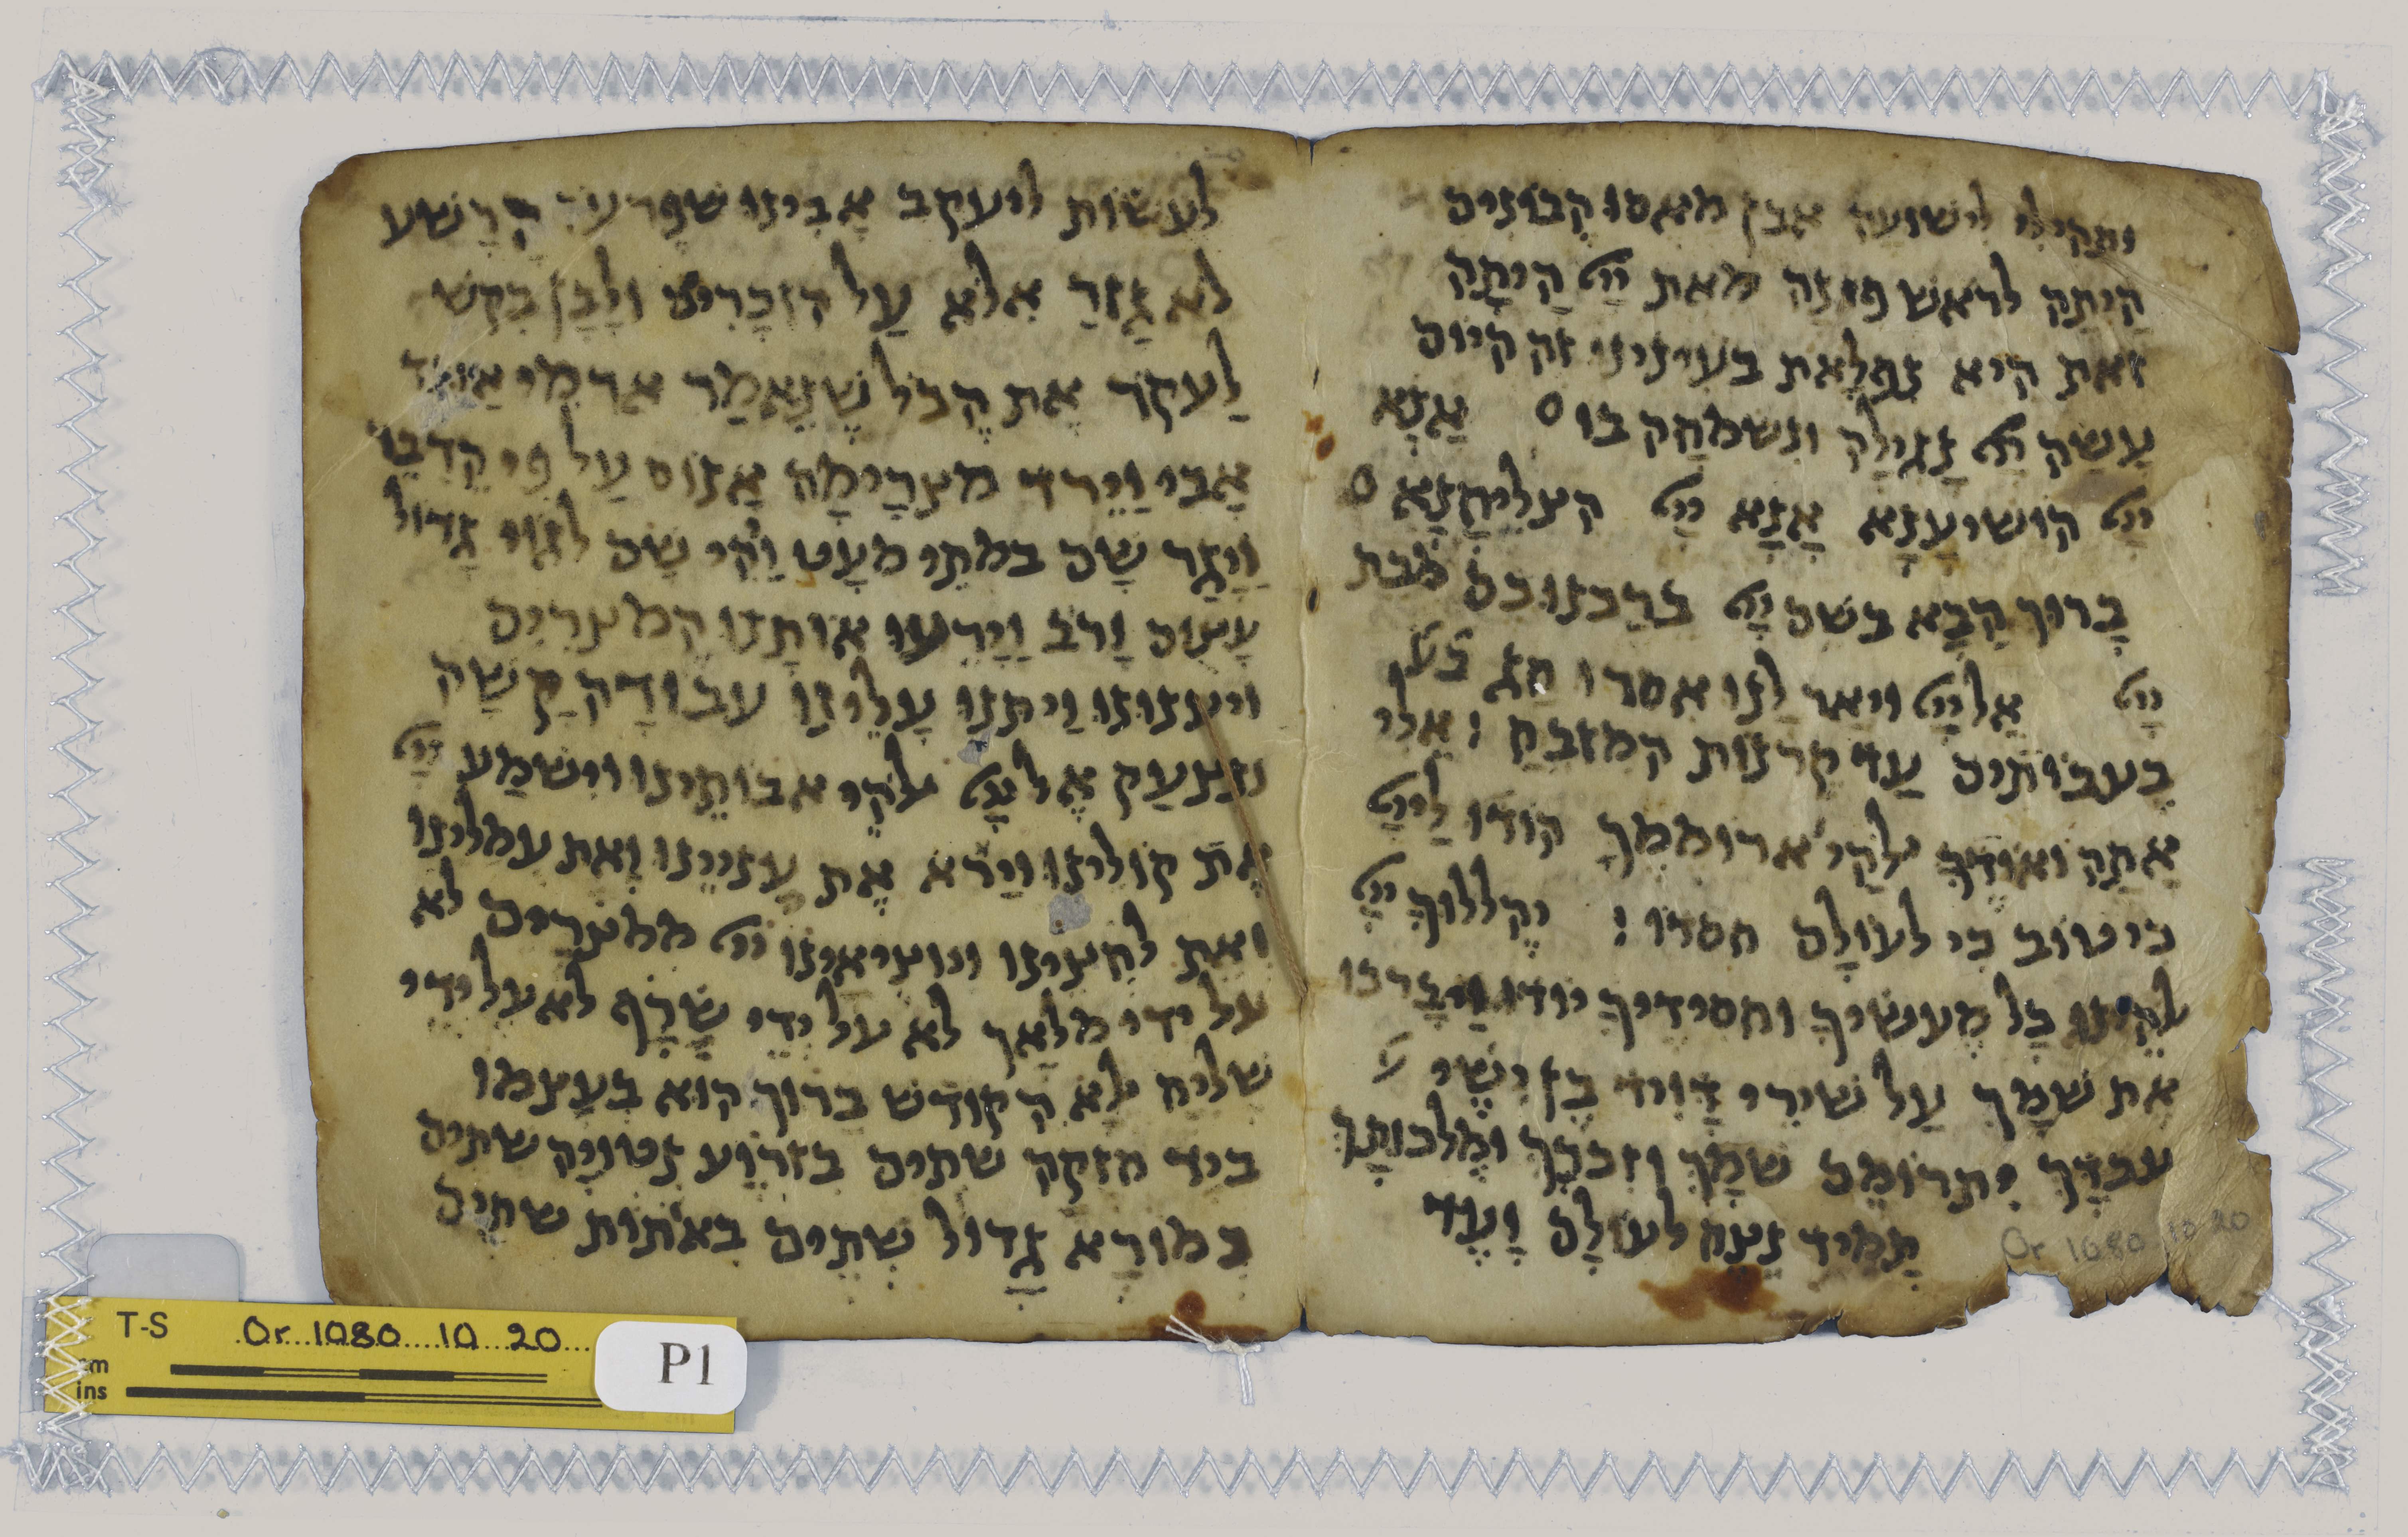 ותהילי לישועה אבן מאסו הבונים
היתה לראש פוננה מאת ייי היתה
זאת היא נפלאת בעינינו זה היום
עשה ייי נגילה ונשמחה בו ס אנא
ייי הושיענא אנא ייי הצליחנא ס
ברוך הבא בשם ייי ברכנוכם מבת
ייי אל ייי ויאר לנו אסרו חג
בעבותים עד קרנות המזבח : אלי
אתה ואודך ילהי ארוממך הודו לייי
כי טוב כי לעולם חסדו : יהללוך ייי
להינו כל מעשיך וחסידיך יודו ויברכו
את שמך על שירי דויד בן ישי ע
עבדך יתרומם שמך וזכרך ומלכותך
תמיד נצח לעולם ועד
לעשות ליעקב אבינו שפרעה הרשע
לא גזר אלא על הזכרים ולבן בקש
לעקר את הכל שנאמר ארמי אובד
אבי וירד מצרימה אנוס על פי הדבור
ויגר שם במתי מעט ויהי שם לגוי גדול
עצום ורב וירעו אותנו המצרים
ויענונו ויתנו עלינו עבודה קשה
ונצעק אל ייי אלהי אבותינו וישמע ייי
את קולינו וירא את עניינו ואת עמלינו
ואת לחצינו ויוציאינו ייי ממצרים לא
על ידי מלאך לא על ידי שרף לא על ידי
שליח ילא הקודש ברוך הוא בעצמו
ביד חזקה שתים בזרוע נטויה שתים
במורא גדול שתים באתות שתים
Or 1080 10 20
T-S Or 1080 10 20
cm
ins
P1